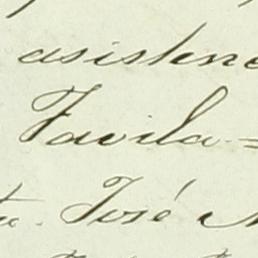 asistenc
Favila =
José